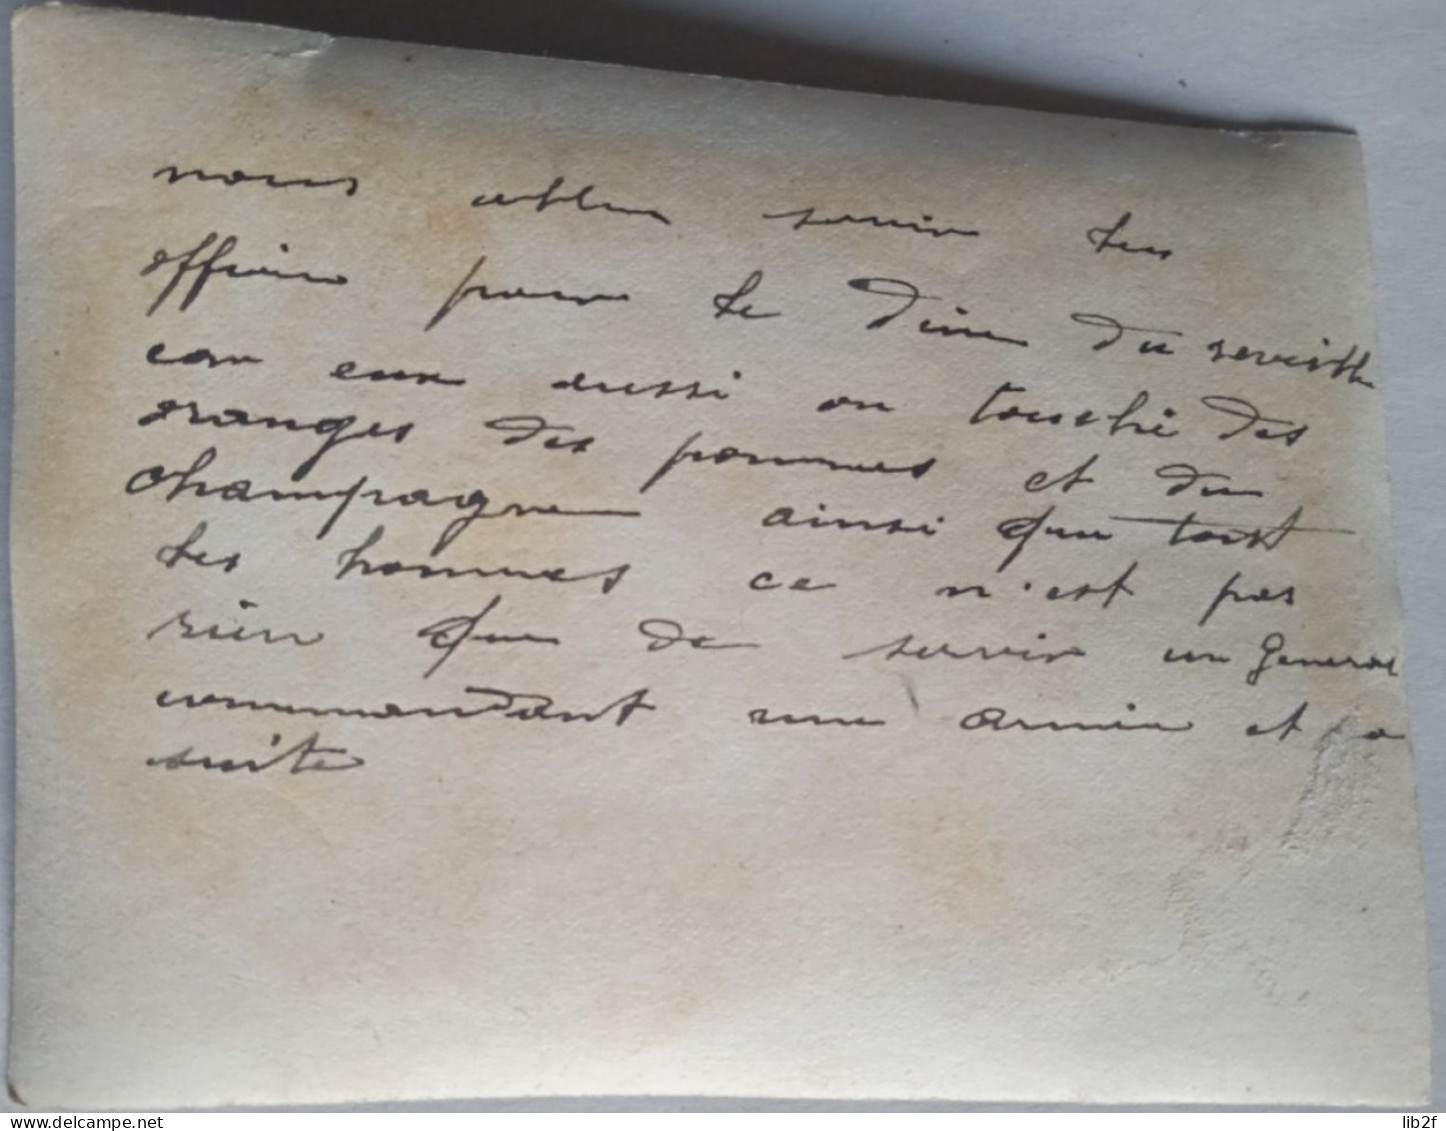 nous allon servir les
officiers pour le diner du reveillon
car eux aussi on touché des
oranges des pommes et du
champagne ainsi que tout
les hommes ce n'est pas
rien que de servir un General
commandant une armée et sa
suite
delcampe.net
lib2f